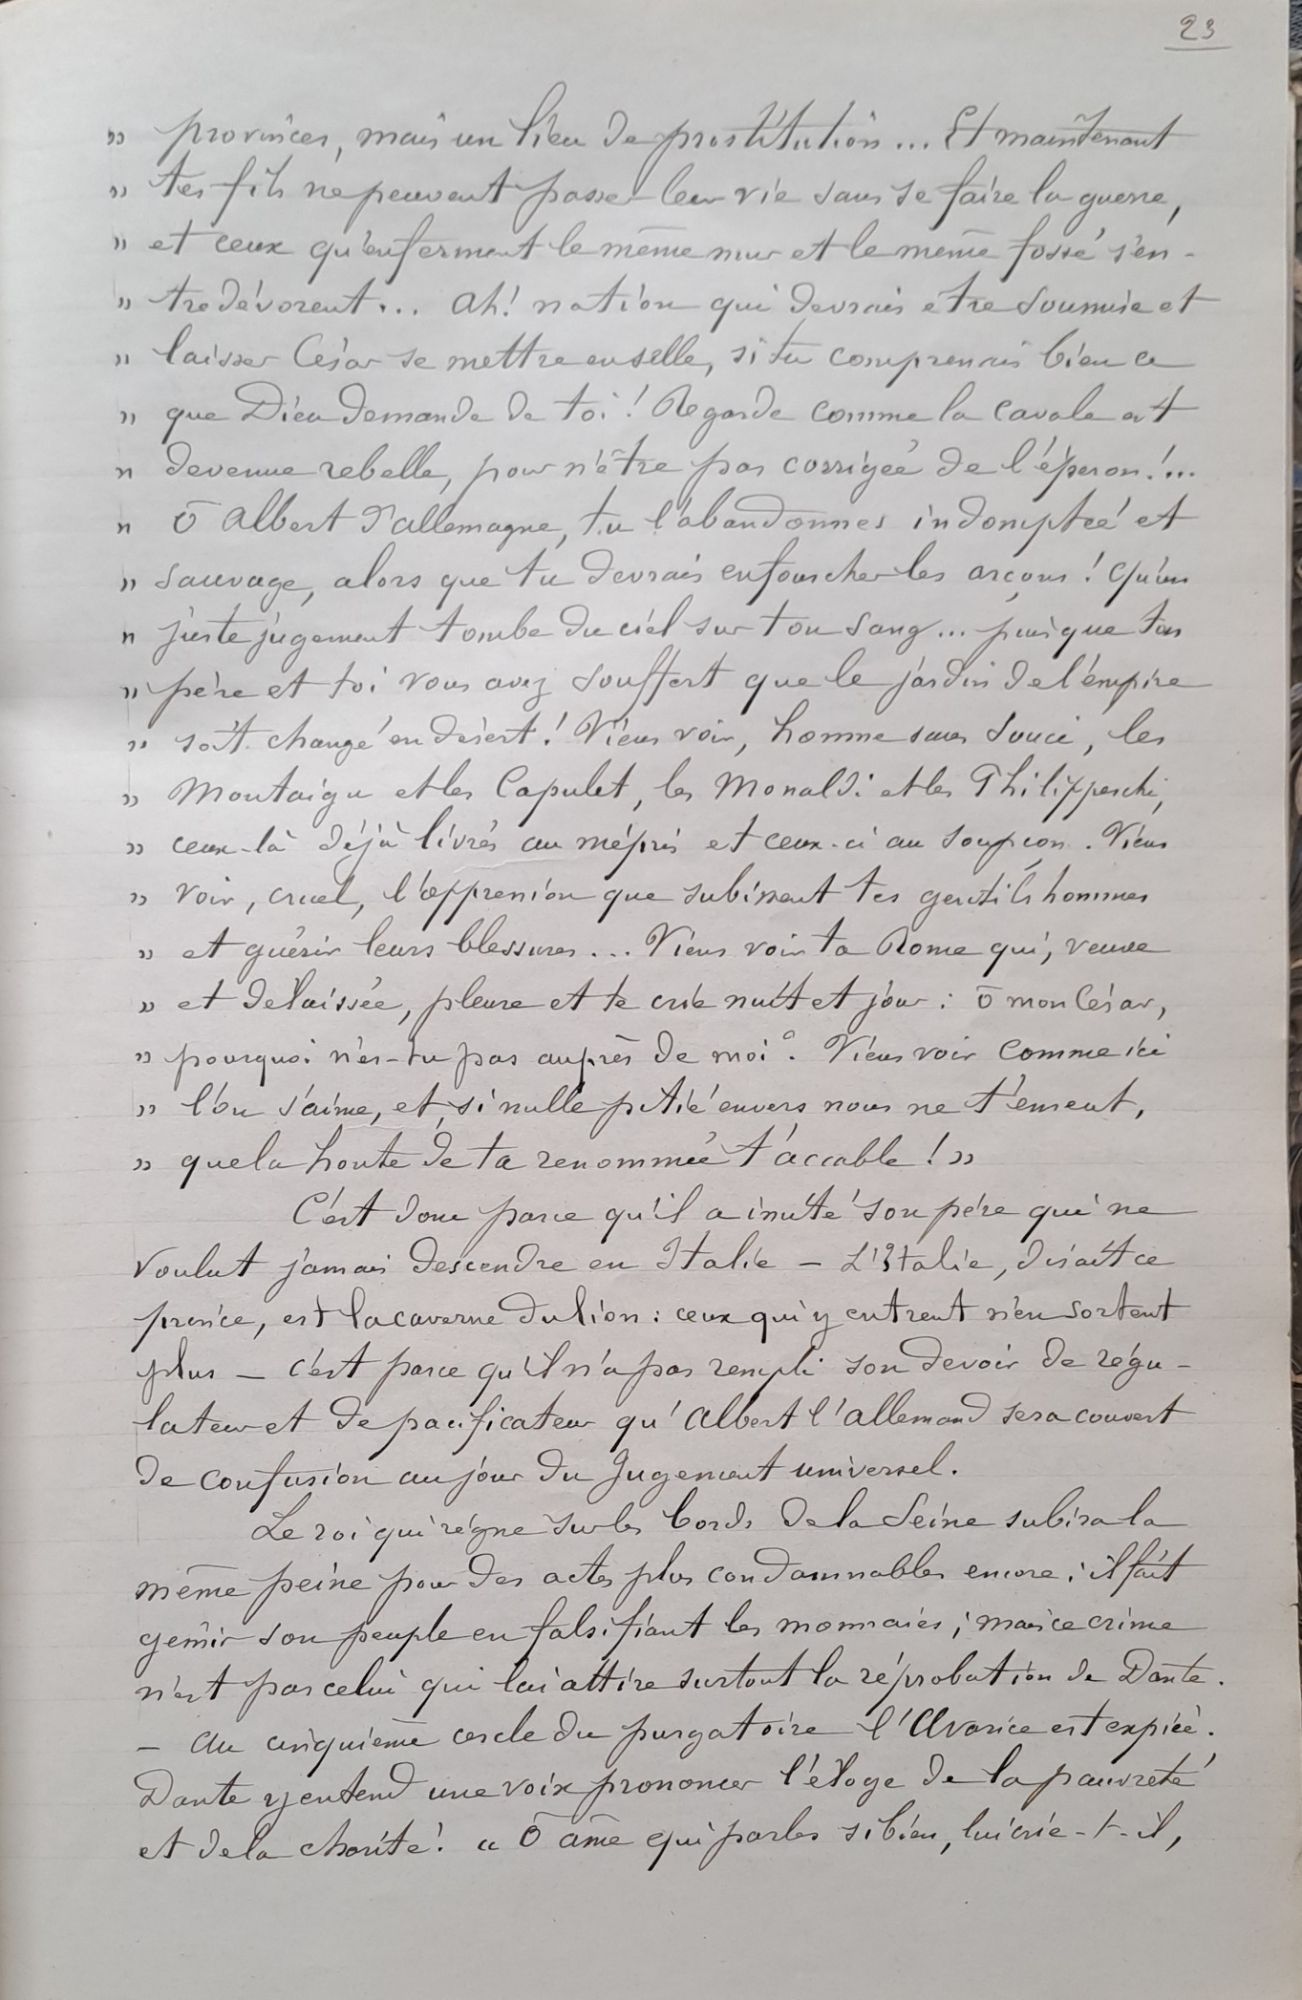 23
» provinces, mais un lieu de prostitution... Et maintenant
» tes fils ne peuvent passer leur vie sans se faire la guerre,
» et ceux qu'enferment le même mur et le même fossé s'en-
» tre dévorent... Ah! nation qui devrais être soumise et
» laisser César se mettre en selle, si tu comprenais bien ce
» que Dieu demande de toi! Regarde comme la cavale est
» devenue rebelle, pour n'être pas corrigée de l'éperon!...
» Ô Albert d'Allemagne, tu l'abandonnes indomptée et
» sauvage, alors que tu devrais enfourcher les arçons! Qu'un
» juste jugement tombe du ciel sur ton sang... puisque ton
» père et toi vous avez souffert que le jardin de l'empire
» soit changé en désert! Viens voir, homme sans souci, les
» Montaigu et les Capulet, les Monaldi et les Philippeschi,
» ceux-là déjà livrés au mépris et ceux-ci au soupçon. Viens
» voir, cruel, l'oppression que subissent tes gentilshommes
» et guérir leurs blessures... Viens voir ta Rome qui, veuve
» et délaissée, pleure et te crie nuit et jour: Ô mon César,
» pourquoi n'es-tu pas auprès de moi? Viens voir comme ici
» l'on s'aime, et, si nulle pitié envers nous ne t'émeut,
» que la honte de ta renommée t'accable!»
C'est donc parce qu'il a imité son père qui ne
voulut jamais descendre en Italie - L'Italie, disait ce
prince, est la caverne du lion: ceux qui y entrent n'en sortent
plus - c'est parce qu'il n'a pas rempli son devoir de régu-
lateur et de pacificateur qu'Albert l'allemand sera couvert
de confusion au jour du Jugement universel.
Le roi qui règne sur les bords de la Seine subira la
même peine pour des actes plus condamnables encore; il fait
gémir son peuple en falsifiant les monnaies; mais ce crime
n'est pas celui qui lui attire surtout la réprobation de Dante.
- Au cinquième cercle du purgatoire l'Avarice est expiée.
Dante y entend une voix prononcer l'éloge de la pauvreté
et de la charité. « Ô âme qui parles si bien, lui crie-t-il,